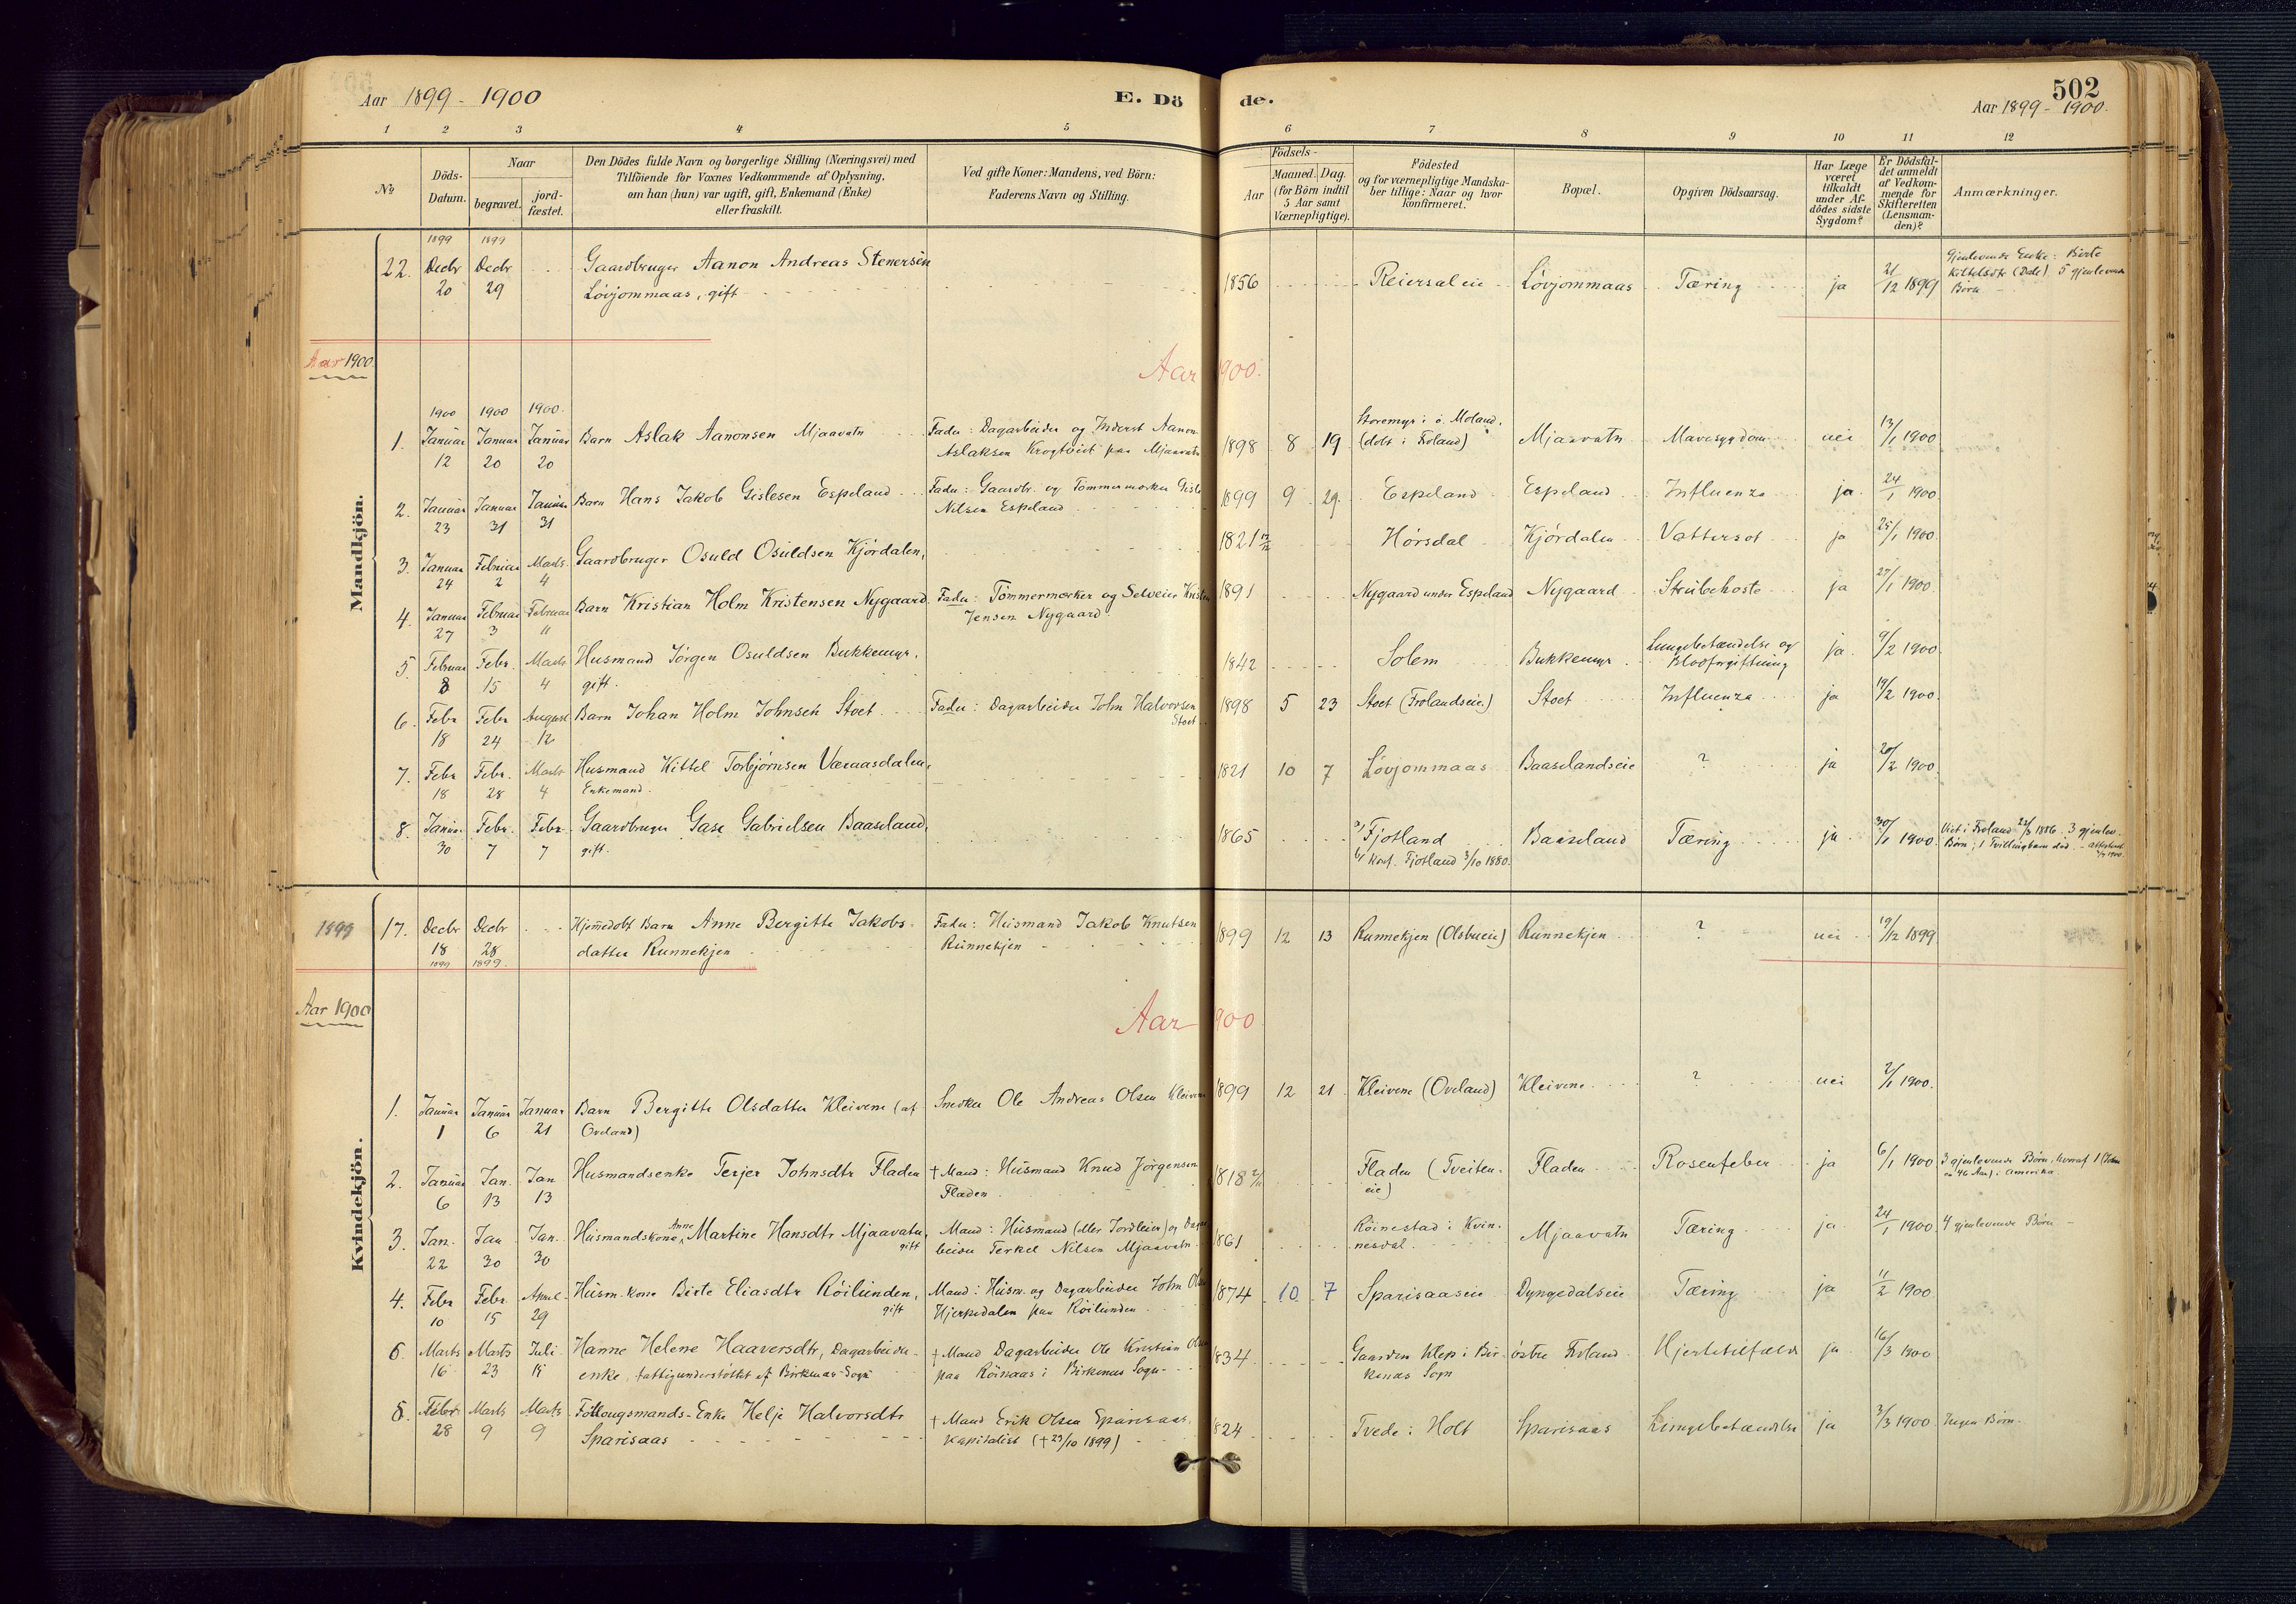 502
Aar 1899 - 1900
E. Dö de.
Aar 1899 - 1900.
1 2 3 4 5 6 7 8 9 10 11 12
No
Döds-Datum.
Naar
begravet.
jord-fæstet.
Den Dödes fulde Navn og borgerlige Stilling (Næringsvei) med
Tilföiende for Voxnes Vedkommende af Oplysning,
om han (hun) var ugift, gift, Enkemand (Enke)
eller fraskilt.
Ved gifte Koner: Mandens, ved Börn:
Faderens Navn og Stilling.
Födsels-
Aar
Maaned. Dag.
(for Börn indtil
5 Aar samt
Værnepligtige).
Födested
og for værnepligtige Mandska-
ber tillige: Naar og hvor
konfirmeret.
Bopæl.
Opgiven Dödsaarsag.
Har Læge
været
tilkaldt
under Af-
dödes sidste
Sygdom?
Er Dödsfal-
det anmeldt
af Vedkom-
mende for
Skifteretten
(Lensman-
den)?
Anmærkninger.
Mandkjön.
1899 1899
22. Decbr 20 Decbr 29 Gaardbruger Aanon Andreas Stenersen
Løvjommaas, gift
1856 Reiersaleie Løvjommaas Tæring ja 21/12 1899
Gjenlevende Enke: Birte
Kittelsdtr (Dale) 5 gjenlevende
Börn
Aar 1900.
Aar 1900.
1900 1900 1900.
1. Januar 12 Januar 20 Januar 20 Barn Aslak Aanonsen Mjaavatn
Fader: Dagarbeider og Inderst Aanon
Aslaksen Krogtveit paa Mjaavatn
1898 8 19 Storemyr i ö. Moland.
(döbt i Froland) Mjaavatn Mavesygdom nei 13/1 1900
2. Januar 23 Januar 31 Januar 31 Barn Hans Jakob Gislesen Espeland
Fader: Gaardbr. og Tömmermærker Gisle
Nilsen Espeland
1899 9 29. Espeland Espeland Influenza ja 24/1 1900
3. Januar 24 Februar 2 Marts 4 Gaardbruger Osuld Osuldsen Kjördalen,
1821 Hörsdal Kjördalen Vattersot ja 25/1 1900
4. Januar 27 Februar 3 Februar 11 Barn Kristian Holm Kristensen Nygaard
Fader: Tömmermærker og Selveier Kristen
Jensen Nygaard
1891 Nygaard under Espeland Nygaard Strubehoste ja 27/1 1900
5. Februar 8 Febr. 15 Marts 4 Husmand Jörgen Osuldsen Bukkemyr.
gift.
1842 Solem Bukkemyr Lungebetændelse og
Blodforgiftning ja 9/2 1900
6. Febr 18 Febr 24 August 12 Barn Johan Holm Johnsen Stoet
Fader: Dagarbeider John Halvorsen
Stoet
1898 5 23 Stoet (Frolandseie) Stoet Influenza ja 19/2 1900.
7. Febr 18 Febr. 28 Marts 4 Husmand Kittel Torbjörnsen Væraasdalen,
Enkemand.
1821 10 7 Løvjommaas Baaselandseie ? ja 20/2 1900.
8. Januar 30 Febr. 7 Febr 7 Gaardbruger Gase Gabrielsen Baaseland,
gift.
1865 a/ Fjotland
b/ Konf. Fjotland 3/10 1880. Baaseland Tæring ja 30/1 1900.
Viet i Froland 22/3 1886. 3 gjenlev.
Börn; 1 Tvillingbarn död. - Attesteret
Kvindekjön.
1899
17. Decbr 18 1899 Decbr 28 1899. Hjemmedöbt Barn Anne Bergitte Jakobs-
datter Runnekjen
Fader: Husmand Jakob Knutsen
Runnekjen
1899 12 13 Runnekjen (Olsbueie) Runnekjen ? nei 19/12 1899
Aar 1900
Aar 1900
1. Januar 1 Januar 6 Januar 21 Barn Bergitte Olsdatter Kleivene (af
Oveland)
Snedker Ole Andreas Olsen Kleivene
1899 12 21 Kleivene (Oveland) Kleivene ? nei 2/1 1900.
2. Januar 6 Jan. 13 Jan 13 Husmandsenke Terjer Johnsdtr Fladen
† Mand: Husmand Knud Jörgensen
Fladen
1818 Fladen (Tveiten-
eie) Fladen Rosenfeber ja 6/1 1900
3 gjenlevende Börn, hvoraf 1 (John
46 Aar) i Amerika
3. Jan. 22 Jan 30 Jan. 30 Husmandskone Anne Martine Hansdtr Mjaavatn,
gift
Mand: Husmand (eller Jordleier) og Dagar
beider Terkel Nilsen Mjaavatn
1861 Röinestad i Kvin-
nesdal. Mjaavatn Tæring ja 24/1 1900
4 gjenlevende Börn
4. Febr 10 Febr. 15 April 29 Husm. kone Birte Eliasdtr Röilunden,
gift
Mand: Husm. og Dagarbeider John Olsen
Hjerpedalen paa Röilunden
1874 10 7 Sparisaaseie Dyngedalseie Tæring ja 11/2 1900
6. Marts 16 Marts 23 Juli Hanne Helene Haaversdtr, Dagarbeider-
enke, fattigunderstöttet af Birkenæs Sogn
† Mand Dagarbeider Ole Kristian Olsen
paa Röinaas i Birkenes Sogn
1834 Gaarden Klep i Bir-
kenæs Sogn östre Froland Hjertetilfælde ja 16/3 1900
5. Febr 28 Marts 9 Marts 9 Föllougsmands-Enke Helje Halvorsdtr
Sparisaas
† Mand Erik Olsen Sparisaas,
Kapitalist († 23/10 1899)
1824 Tvede i Holt Sparisaas Lungebetændelse ja 3/3 1900 Ingen Börn.